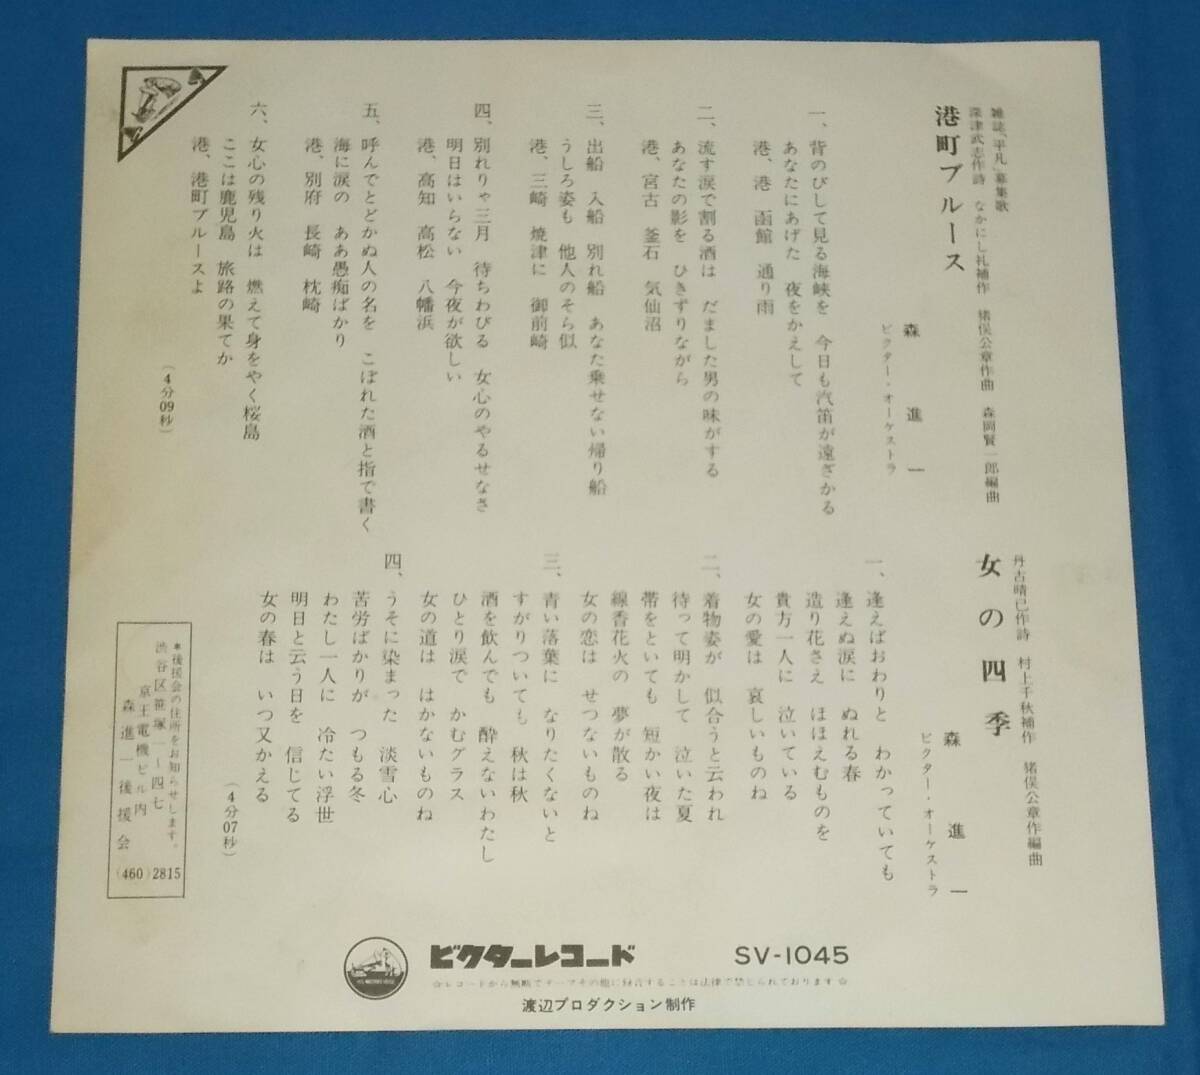 雑誌、平凡、募集歌
深津武志作詩 なかにし礼補作 猪俣公章作曲 森岡賢一郎編曲
港町ブルース
森進一
ビクター・オーケストラ
一、背のびして見る海峡を 今日も汽笛が遠ざかる
あなたにあげた 夜をかえして
港、港 函館 通り雨
二、流す涙で割る酒は だました男の味がする
あなたの影を ひきずりながら
港、宮古 釜石 気仙沼
三、出船 入船 別れ船 あなた乗せない帰り船
うしろ姿も 他人のそら似
港、三崎 焼津に 御前崎
四、別れりゃ三月 待ちわびる 女心のやるせなさ
明日はいらない 今夜が欲しい
港、高知 高松 八幡浜
五、呼んでとどかぬ人の名を こぼれた酒と指で書く
海に涙の ああ愚痴ばかり
港、別府 長崎 枕崎
六、女心の残り火は 燃えて身をやく桜島
ここは鹿児島 旅路の果てか
港、港町ブルースよ
(4分09秒)
丹古晴己作詩 村上千秋補作 猪俣公章作編曲
女の四季
森進一
ビクター・オーケストラ
一、逢えばおわりと わかっていても
逢えぬ涙に ぬれる春
造り花さえ ほほえむものを
貴方一人に 泣いている
女の愛は 哀しいものね
二、着物姿が 似合うと云われ
待って明かして 泣いた夏
帯をといても 短かい夜は
線香花火の 夢が散る
女の恋は せつないものね
三、青い落葉に なりたくないと
すがりついても 秋は秋
酒を飲んでも 酔えないわたし
ひとり涙で かむグラス
女の道は はかないものね
四、うそに染まった 淡雪心
苦労ばかりが つもる冬
わたし一人に 冷たい浮世
明日と云う日を 信じてる
女の春は いつ又かえる
(4分07秒)
*後援会の住所をお知らせします。
渋谷区笹塚一〜四七
京王電機ビル内
森進一後援会
(460)2815
ビクターレコード SV-1045
☆レコードから無断でテープその他に録音することは法律で禁じられております☆
渡辺プロダクション制作